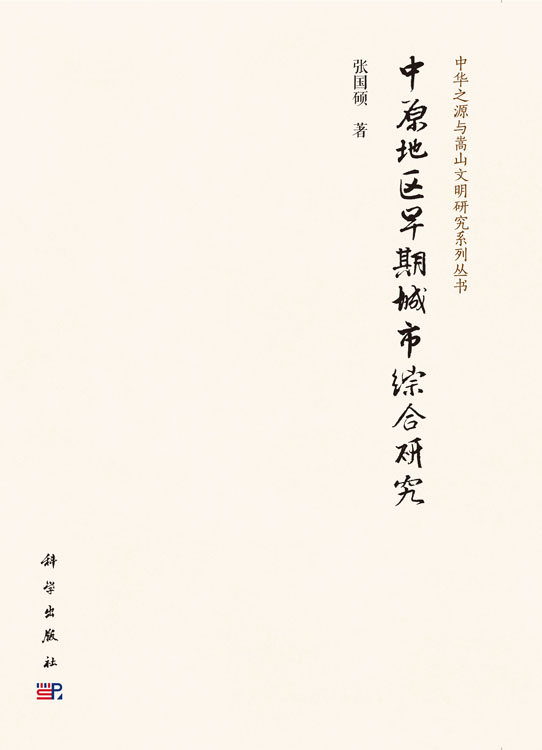 中华之源与嵩山文明研究系列丛书
中原地区早期城市综合研究
张国硕 著
科学出版社
SP